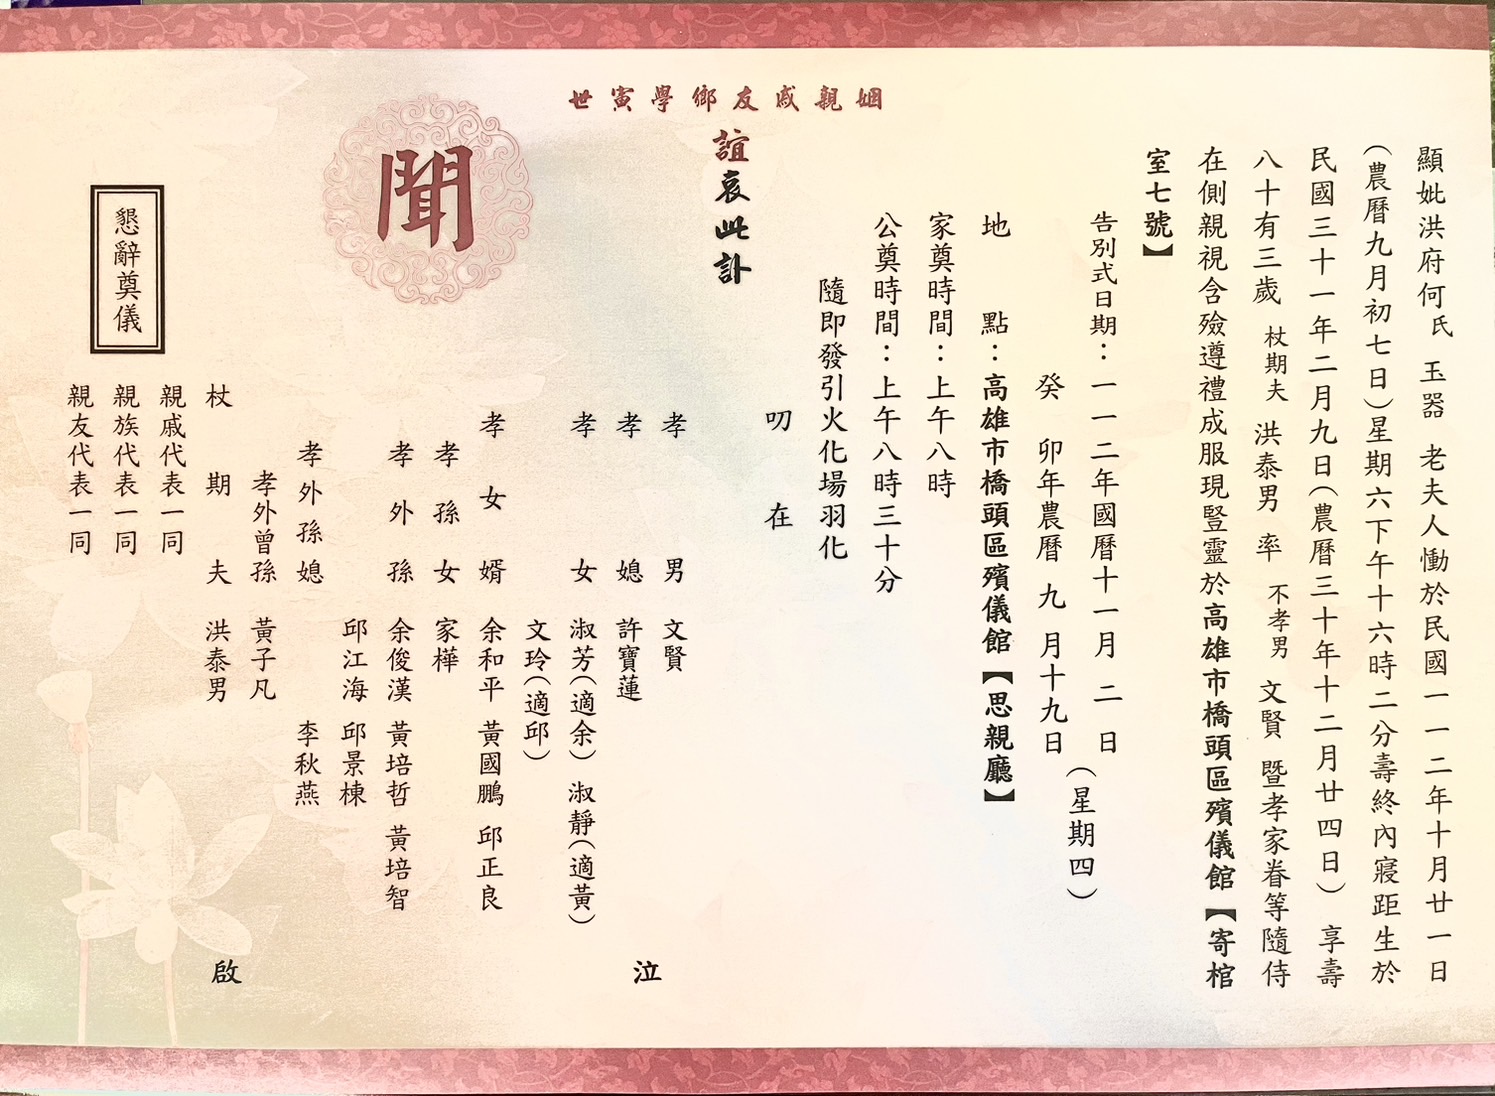 顯妣洪府何氏 玉器 老夫人慟於民國一一二年十月廿一日
(農曆九月初七日)星期六下午十六時二分壽終內寢距生於
民國三十一年二月九日(農曆三十年十二月廿四日) 享壽
八十有三歲 杖期夫 洪泰男 率 不孝男 文賢 暨孝家眷等隨侍
在側親視含殮遵禮成服現豎靈於高雄市橋頭區殯儀館【寄棺
室七號】
告別式日期：一一二年國曆十一月 二 日
癸 卯年農曆 九 月十九日
(星期四)
地 點：高雄市橋頭區殯儀館【思親廳】
家奠時間：上午八時
公奠時間：上午八時三十分
隨即發引火化場羽化
叨 在
姻親戚友鄉學寅世
誼哀此訃
聞
孝 男 文賢
孝 媳 許寶蓮
孝 女 淑芳(適余) 淑靜(適黃)
文玲(適邱)
孝 女 婿 余和平 黃國鵬 邱正良
孝 孫 女 家樺
孝 外 孫 余俊漢 黃培哲 黃培智
邱江海 邱景棟
孝外孫媳 李秋燕
孝外曾孫 黃子凡
泣
杖 期 夫 洪泰男
啟
親戚代表一同
親族代表一同
親友代表一同
懇辭奠儀